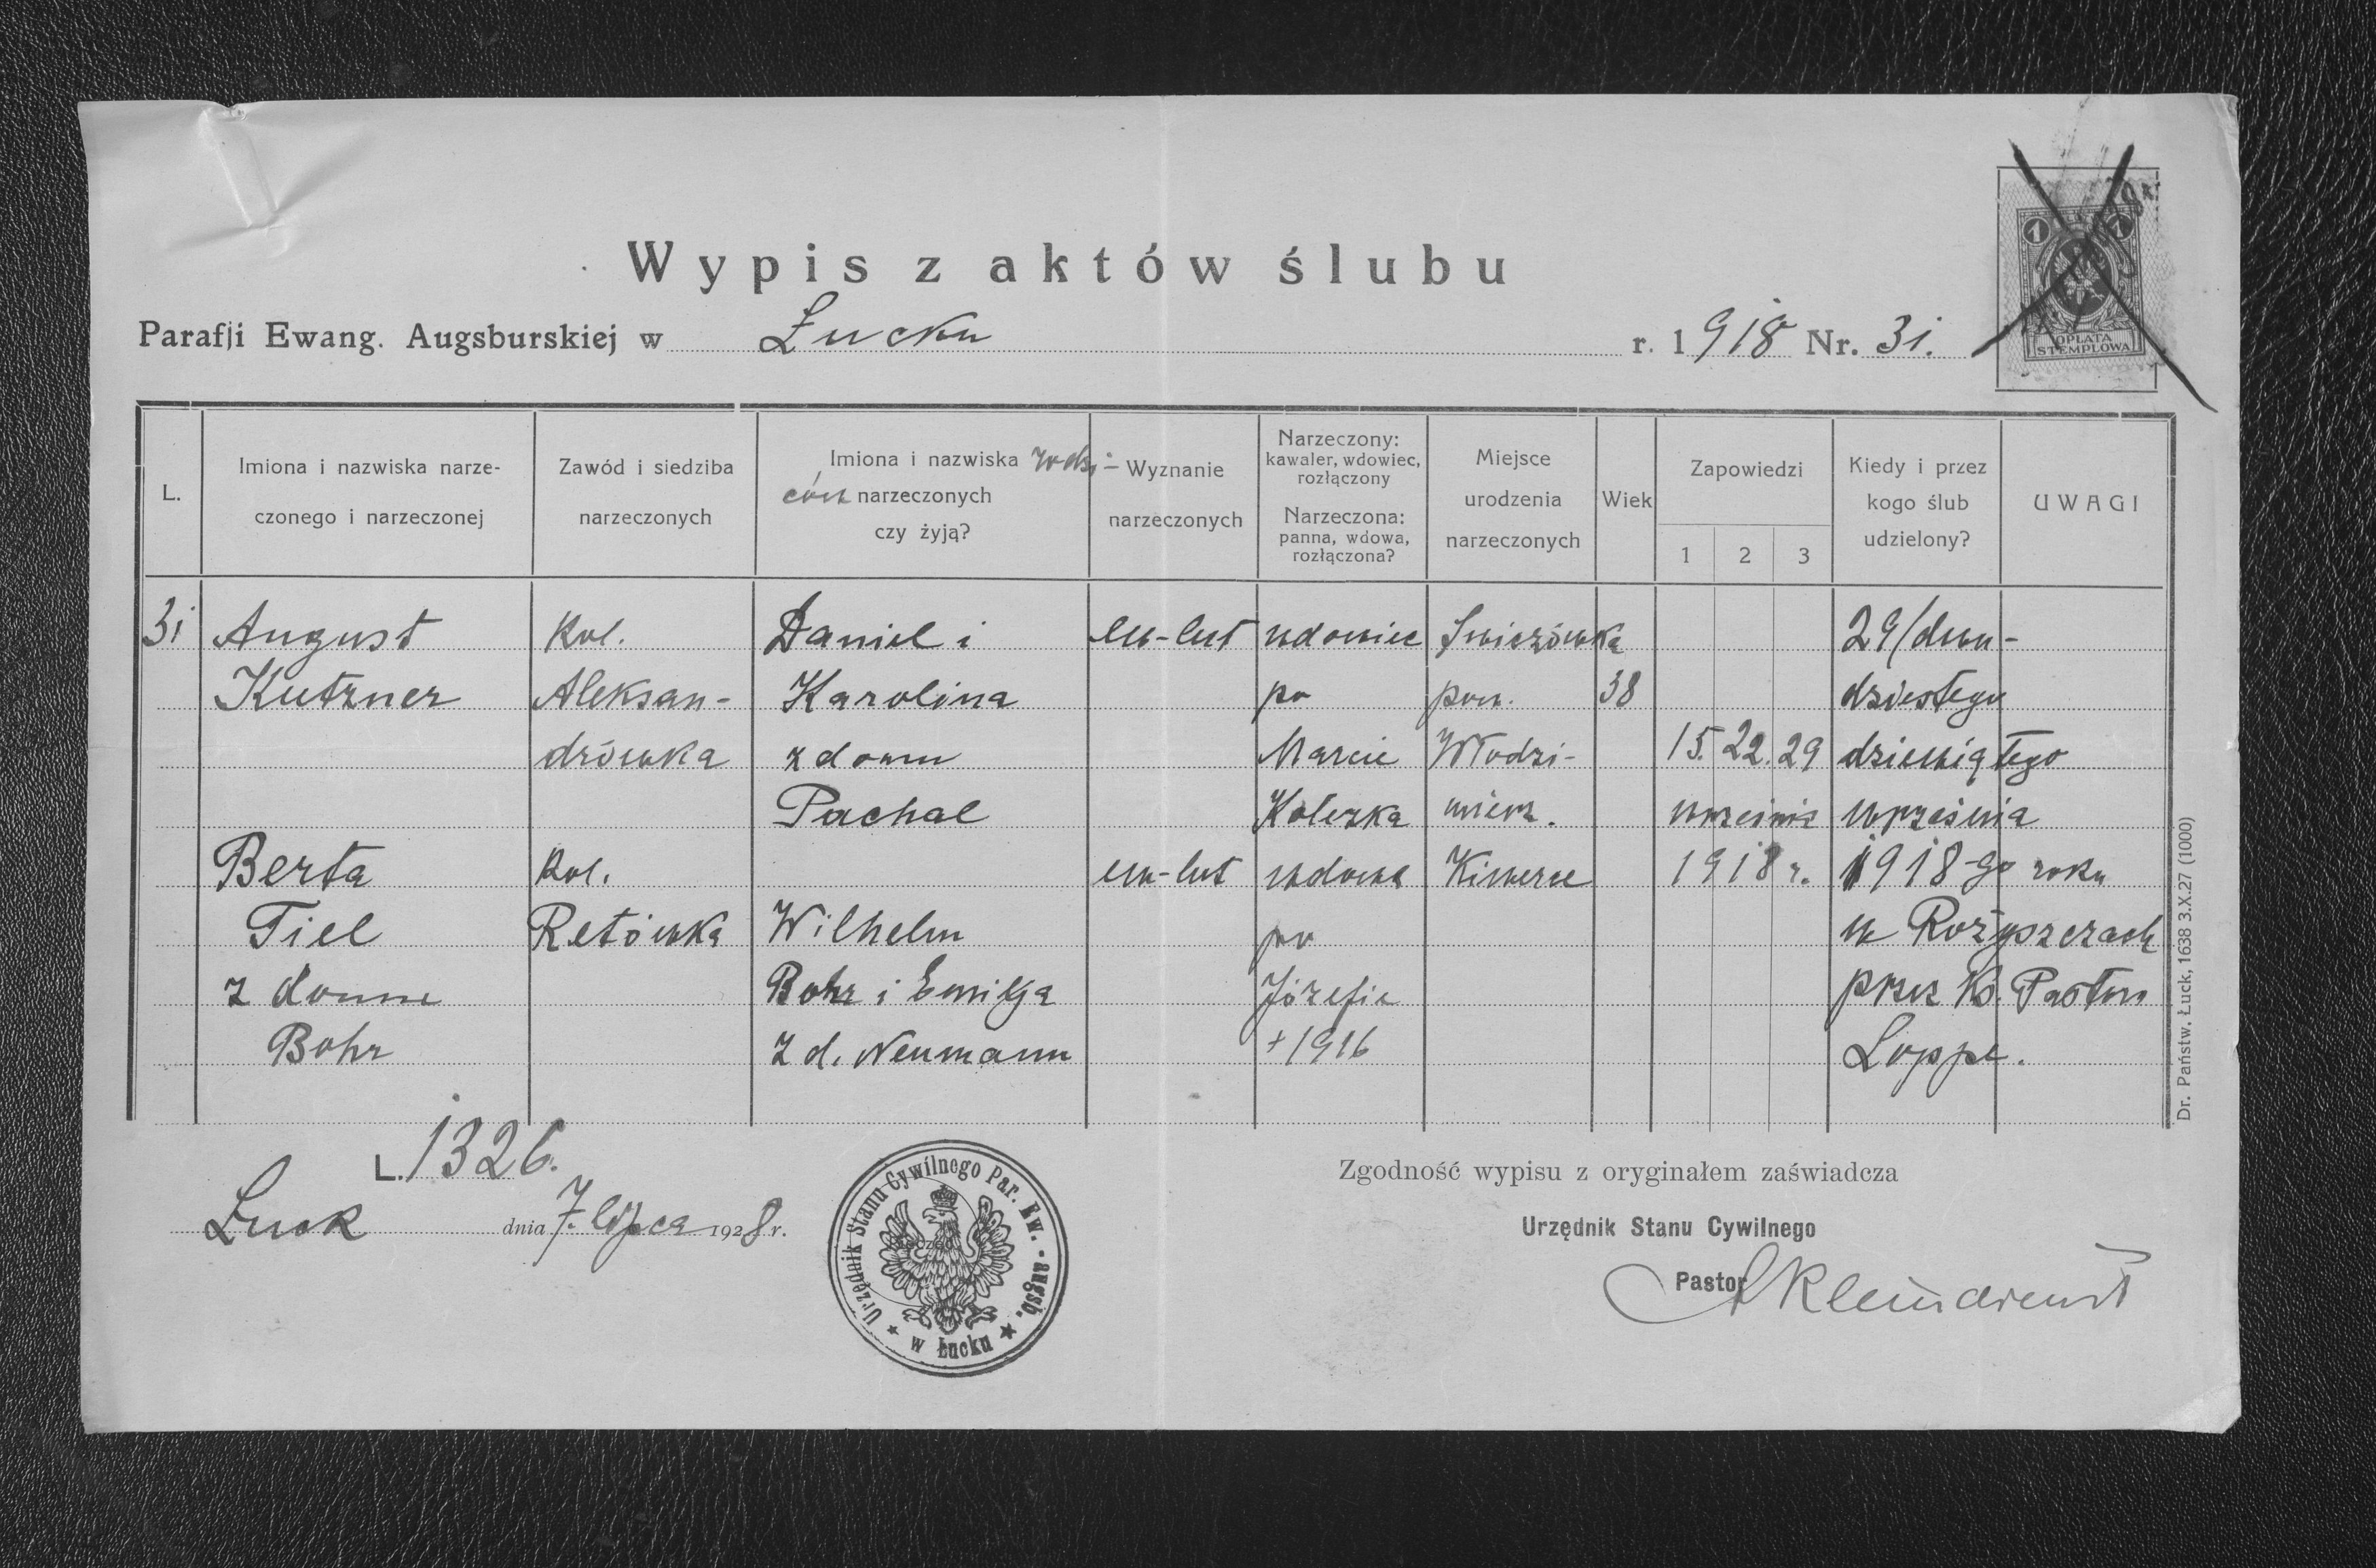 Wypis z aktów ślubu
Parafji Ewang. Augsburskiej w Łucku r. 1918 Nr. 31.
1 1
OPŁATA
STEMPLOWA
L.
Imiona i nazwiska narze-
czonego i narzeczonej
Zawód i siedziba
narzeczonych
Imiona i nazwiska rodzi-
ców narzeczonych
czy żyją?
Wyznanie
narzeczonych
Narzeczony:
kawaler, wdowiec,
rozłączony
Narzeczona:
panna, wdowa,
rozłączona?
Miejsce
urodzenia
narzeczonych
Wiek
Zapowiedzi
1 2 3
Kiedy i przez
kogo ślub
udzielony?
UWAGI
31 August Kol. Daniel i ew-lut wdowiec Świczówka 29/dwu-
Kutzner Aleksan- Karolina po pow. 38 dziestego
drówka z domu Marcie Włodzi- 15. 22. 29 dziewiątego
Pachal Kolezka mierz. września września
Berta Kol. ew-lut wdowa Kiwerce 1918 r. 1918-go roku
Tiel Retówka Wilhelm po w Rożyszczach
z domu Bohr i Emilja Józefie przez Ks. Pastora
Bohr z d. Neumann +1916 Loppe.
L. 1326.
Łuck dnia 7. lipca 1928 r.
Urzędnik Stanu Cywilnego Par. Ew. - augsb.
w Łucku
Zgodność wypisu z oryginałem zaświadcza
Urzędnik Stanu Cywilnego
Pastor AKleindienst
Dr. Państw. Łuck, 1638 3.X.27 (1000)